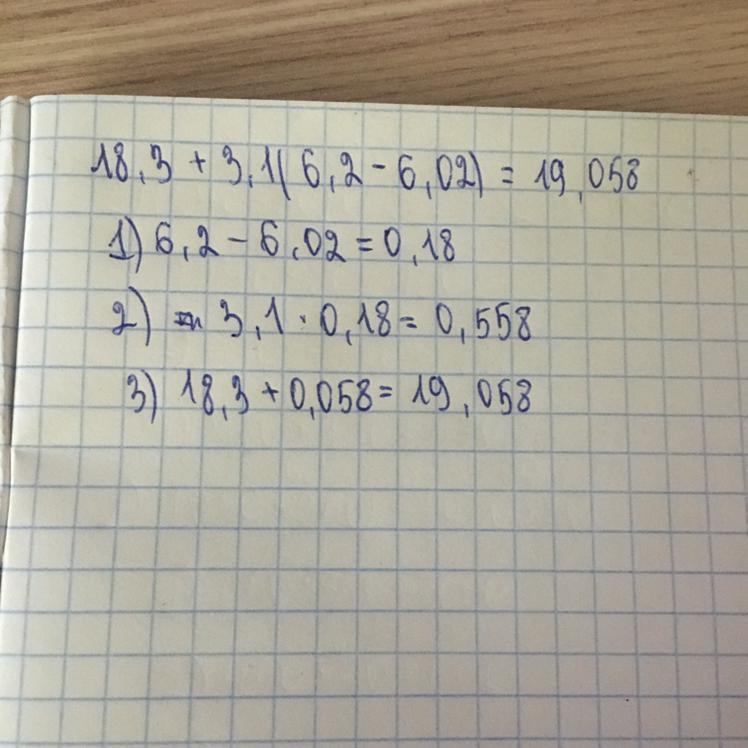 18,3 + 3,1( 6,2 - 6,02) = 19,058
1) 6,2 - 6,02 = 0,18
2) 3,1 · 0,18 = 0,558
3) 18,3 + 0,058 = 19,058